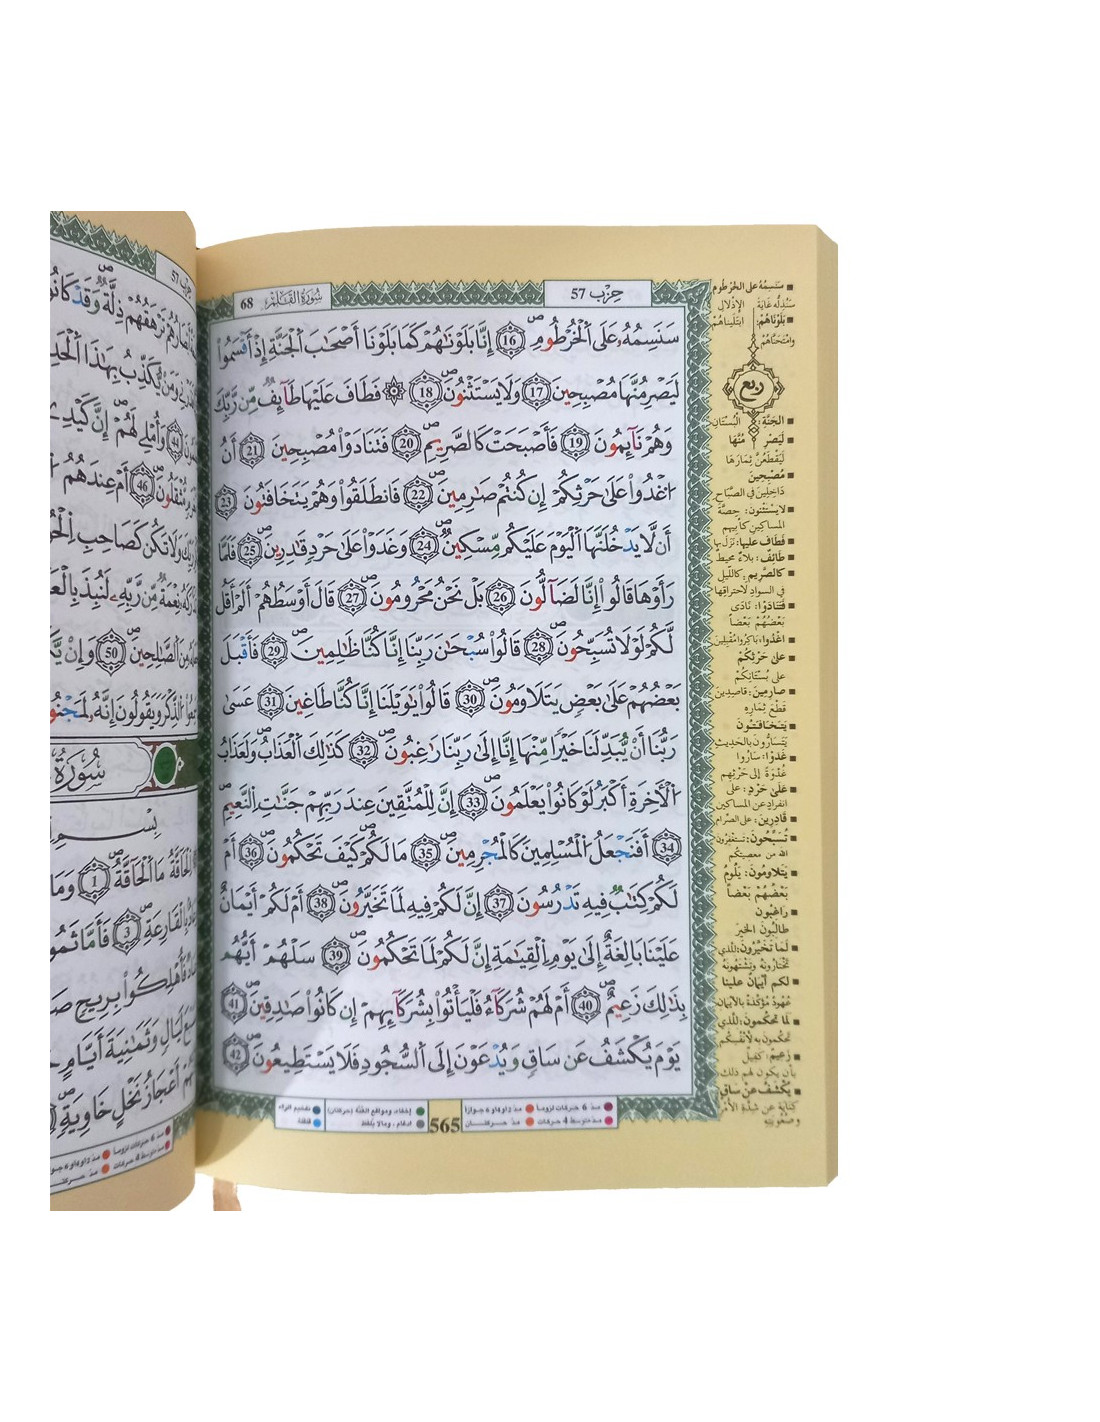 حِزْب 57
سُورَةُ القَلَمِ 68
سَنَسِمُهُۥ عَلَى اَ۬لْخُرْطُومِ 16 إِنَّا بَلَوْنَٰهُمْ كَمَا بَلَوْنَا أَصْحَٰبَ اَ۬لْجَنَّةِ إِذْ أَقْسَمُواْ
لَيَصْرِمُنَّهَا مُصْبِحِينَ 17 وَلَا يَسْتَثْنُونَ 18 ۞ فَطَافَ عَلَيْهَا طَآئِفٌ مِّن رَّبِّكَ
وَهُمْ نَآئِمُونَ 19 فَأَصْبَحَتْ كَالصَّرِيمِ 20 فَتَنَادَوْاْ مُصْبِحِينَ 21 أَنُ
اُ۟غْدُواْ عَلَىٰ حَرْثِكُمْ إِن كُنتُمْ صَٰرِمِينَ 22 فَانطَلَقُواْ وَهُمْ يَتَخَٰفَتُونَ 23
أَن لَّا يَدْخُلَنَّهَا اَ۬لْيَوْمَ عَلَيْكُم مِّسْكِينٌ 24 وَغَدَوْاْ عَلَىٰ حَرْدٍ قَٰدِرِينَ 25 فَلَمَّا
رَأَوْهَا قَالُواْ إِنَّا لَضَآلُّونَ 26 بَلْ نَحْنُ مَحْرُومُونَ 27 قَالَ أَوْسَطُهُمْ أَلَمْ أَقُل
لَّكُمْ لَوْلَا تُسَبِّحُونَ 28 قَالُواْ سُبْحَٰنَ رَبِّنَا إِنَّا كُنَّا ظَٰلِمِينَ 29 فَأَقْبَلَ
بَعْضُهُمْ عَلَىٰ بَعْضٖ يَتَلَٰوَمُونَ 30 قَالُواْ يَٰوَيْلَنَا إِنَّا كُنَّا طَٰغِينَ 31 عَسَىٰ
رَبُّنَا أَنْ يُّبَدِّلَنَا خَيْراٗ مِّنْهَا إِنَّا إِلَىٰ رَبِّنَا رَٰغِبُونَ 32 كَذَٰلِكَ اَ۬لْعَذَابُ وَلَعَذَابُ
اُ۬لْأٓخِرَةِ أَكْبَرُ لَوْ كَانُواْ يَعْلَمُونَ 33 إِنَّ لِلْمُتَّقِينَ عِندَ رَبِّهِمْ جَنَّٰتِ اِ۬لنَّعِيمِ
34 أَفَنَجْعَلُ اُ۬لْمُسْلِمِينَ كَالْمُجْرِمِينَ 35 مَا لَكُمْ كَيْفَ تَحْكُمُونَ 36 أَمْ
لَكُمْ كِتَٰبٞ فِيهِ تَدْرُسُونَ 37 إِنَّ لَكُمْ فِيهِ لَمَا تَخَيَّرُونَ 38 أَمْ لَكُمْ أَيْمَٰنٌ
عَلَيْنَا بَٰلِغَةٌ إِلَىٰ يَوْمِ اِ۬لْقِيَٰمَةِ إِنَّ لَكُمْ لَمَا تَحْكُمُونَ 39 سَلْهُمْ أَيُّهُم
بِذَٰلِكَ زَعِيمٌ 40 أَمْ لَهُمْ شُرَكَآءُ فَلْيَأْتُواْ بِشُرَكَآئِهِمْ إِن كَانُواْ صَٰدِقِينَ 41
يَوْمَ يُكْشَفُ عَن سَاقٖ وَيُدْعَوْنَ إِلَى اَ۬لسُّجُودِ فَلَا يَسْتَطِيعُونَ 42
سَنَسِمُهُ عَلَى الخُرْطُومِ
سَنُذِلُّه غايَةَ الإذْلالِ
بَلَوْنَاهُمْ: ابتَلَيناهُمْ
وامْتَحَنّاهُمْ
ربع
الجَنَّةِ: البُسْتَانِ
لَيَصْرِمُنَّهَا
لَيَقْطَعُنَّ ثِمَارَهَا
مُصْبِحِينَ
دَاخِلِينَ في الصَّبَاحِ
لا يَسْتَثْنُونَ: حِصَّةَ
المساكين كأبيهم
فَطَافَ عليها: نَزَلَ بها
طَائِفٌ: بلاءٌ محيطٌ
كالصَّرِيمِ: كاللَّيلِ
في السوادِ لاحتراقِها
فَتَنَادَوْا: نَادَى
بَعْضُهُمْ بَعْضًا
اغْدُوا: بَاكِرُوا مُقْبِلِينَ
عَلَى حَرْثِكُمْ
على بُسْتَانِكُمْ
صارِمِينَ: قاصدين
قَطْعَ ثِمَارِهِ
يَتَخَافَتُونَ
يَتَسارُّونَ بالحَدِيثِ
غَدَوْا: سَارُوا
غُدْوَةً إلى حَرْثِهِم
عَلَى حَرْدٍ: على
انفرادٍ عن المساكين
قَادِرِينَ: على الصِّرام
تُسَبِّحُونَ: تستغفِرون
اللّه من معصيتكم
يَتَلاوَمُونَ: يَلُومُ
بَعْضُهُمْ بَعْضاً
رَاغِبُون
طالِبُون الخير
لَمَا تَخَيَّرُونَ: للَّذي
تَختارُونه وتَشتَهونه
لكم أيْمَانٌ علَينَا
عُهُودٌ مُؤَكَّدَةٌ بالأيْمانِ
لَمَا تَحكُمونَ: للَّذي
تحكُمون به لأنفُسِكم
زعيمٌ: كفيلٌ
بأن يكون لهم ذلك
يُكْشَفُ عَنْ سَاقٍ
كِنَايَةٌ عن شِدَّةِ الأَمْرِ
وصُعُوبَتِه
مدّ 6 حركات لزوماً
مدّ 2 أو 4 أو 6 جوازاً
مدّ متوسط 4 حركات
مدّ حركتان
565
إخفاء، ومواقع الغُنَّة (حركتان)
إدغام، وما لا يُلفظ
تفخيم الراء
قلقلة
حِزْب 57
تَرْهَقُهُمْ ذِلَّةٌ وَقَدْ كَانُواْ
وَمَنْ يُّكَذِّبُ بِهَٰذَا
44 وَأُمْلِي لَهُمْ إِنَّ كَيْدِي
مُّثْقَلُونَ 46 أَمْ عِندَهُمُ
وَلَا تَكُن كَصَاحِبِ اِ۬لْحُوتِ
نِعْمَةٌ مِّن رَّبِّهِۦ لَنُبِذَ
مِنَ اَ۬لصَّٰلِحِينَ 50 وَإِنْ
اُ۬لذِّكْرَ وَيَقُولُونَ إِنَّهُۥ لَمَجْنُونٌ
سُورَةُ
بِسْمِ
اِ۬لْحَآقَّةُ مَا اَ۬لْحَآقَّةُ 1 وَمَا
بِالْقَارِعَةِ 3 فَأَمَّا ثَمُودُ
فَأُهْلِكُواْ بِرِيحٖ
لَيَالٖ وَثَمَٰنِيَةَ أَيَّامٍ
أَعْجَازُ نَخْلٍ خَاوِيَةٖ